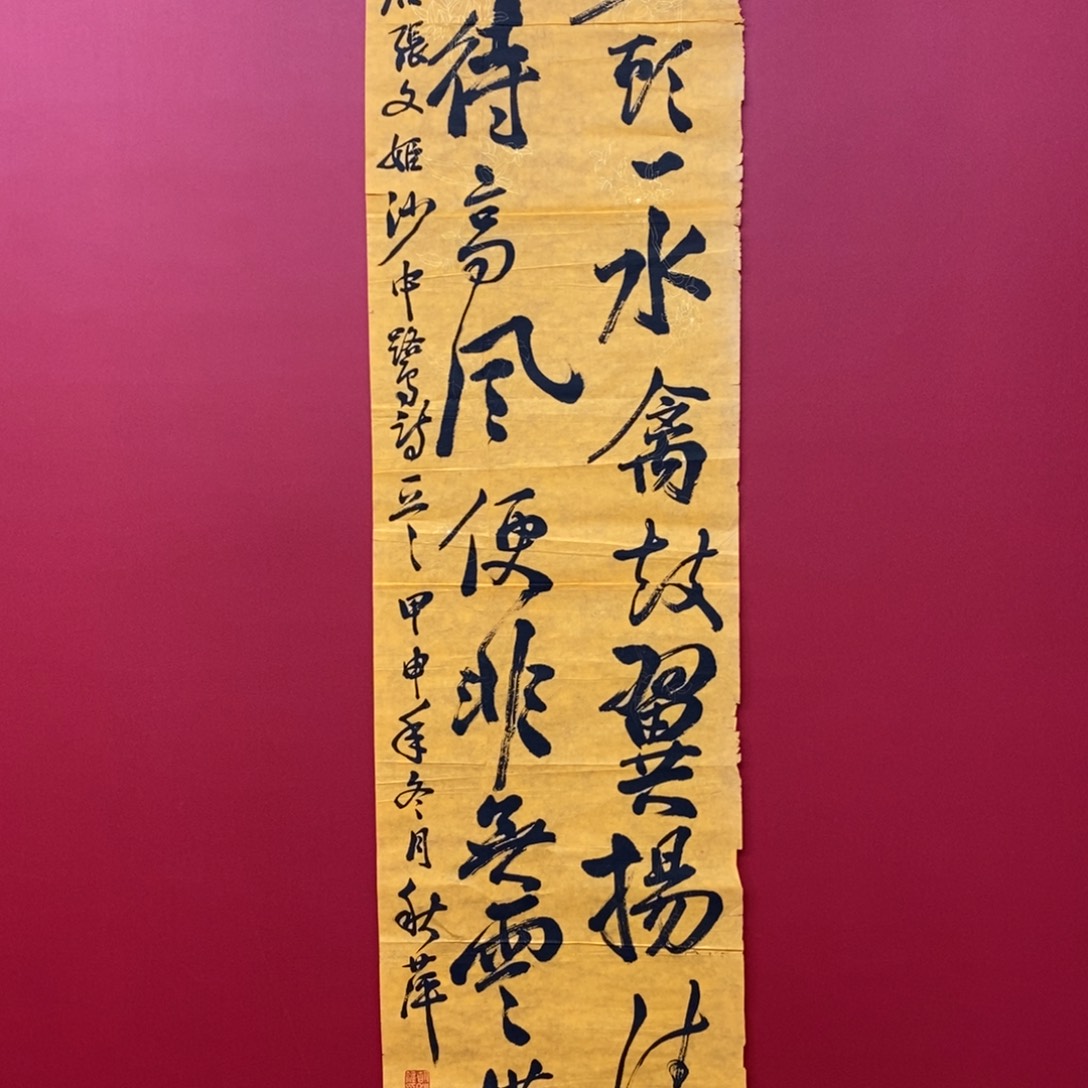 頭一水禽鼓翼揚清
待高風便非無雲
張文姬沙中鷺詩 甲申年冬月秋萍